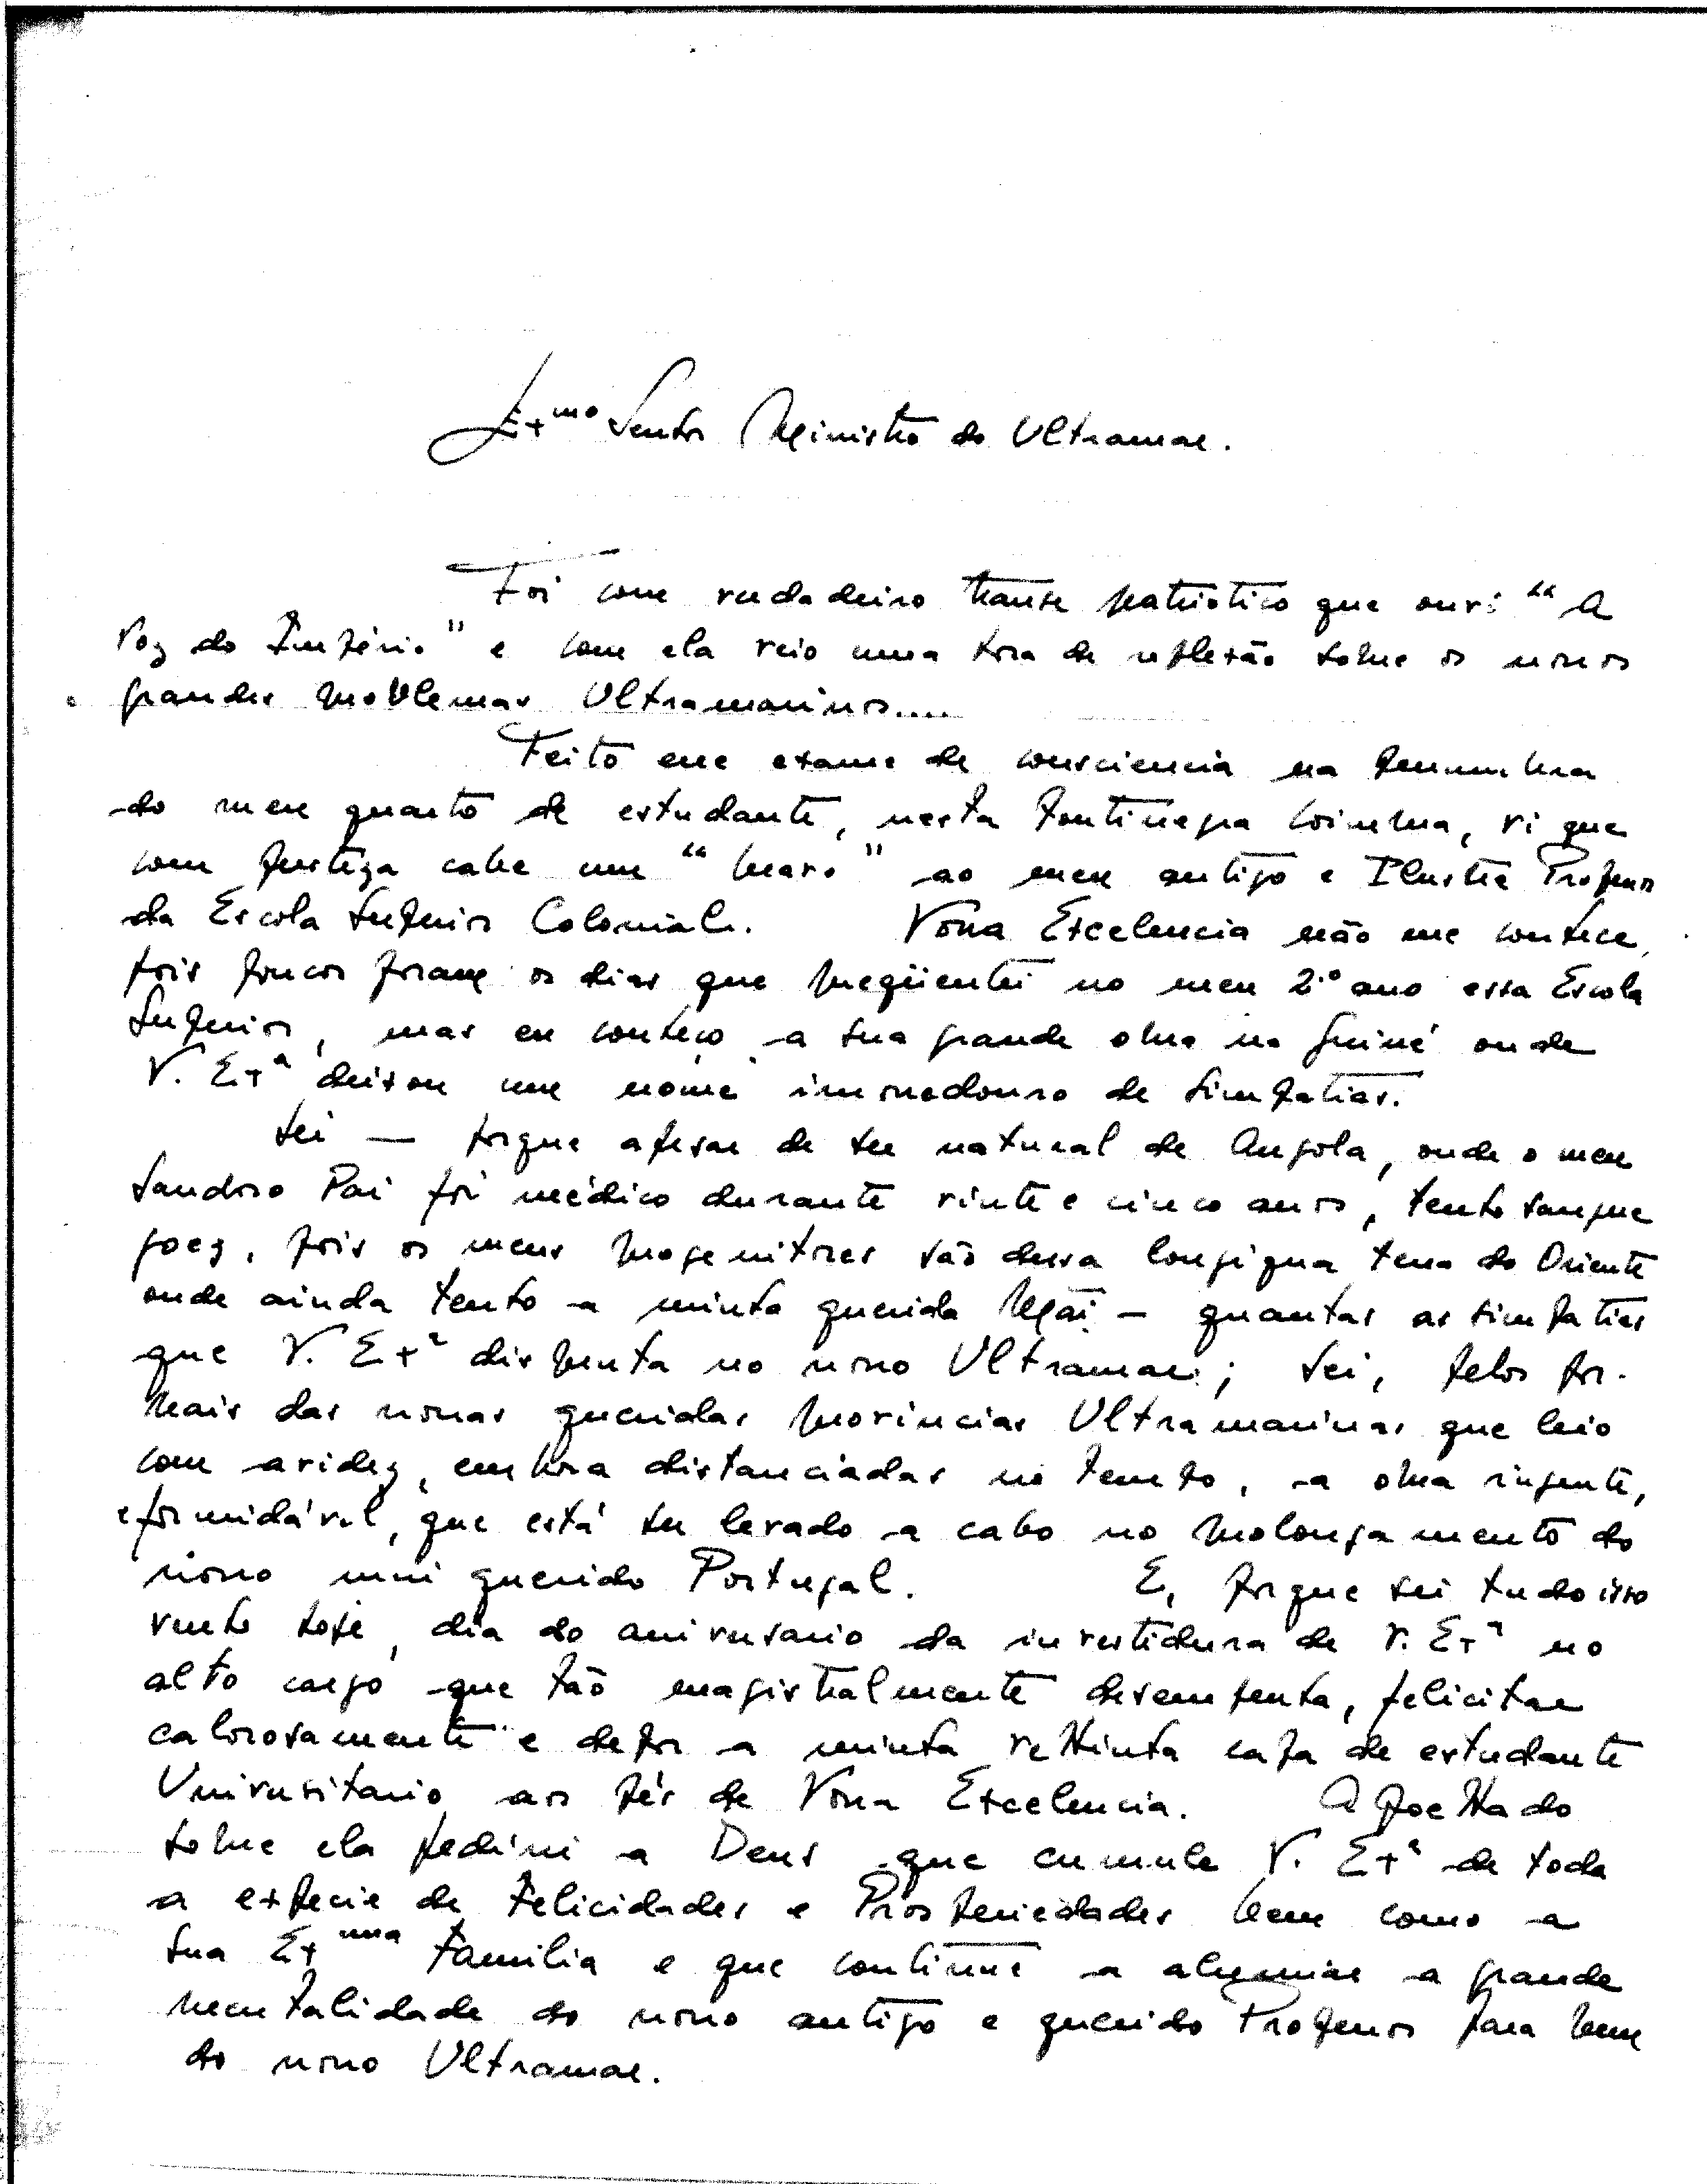 Ex.mo Senhor Ministro do Ultramar.
Foi com verdadeiro transe patriotico que ouvi "A
Voz do Império" e com ela veio uma hora de reflexão sobre os nossos
grandes problemas Ultramarinos....
Feito em exame de consciencia na penumbra
do meu quarto de estudante, nesta Coimbra, vi que
com justeza cabe um "bravo" ao meu antigo e Ilustre Professor
da Escola Superior Colonial. Vossa Excelencia não me conhece,
pois poucos foram os dias que freqüentei no meu 2.º ano essa Escola
Superior, mas eu conheço a sua grande obra na Guiné onde
V. Ex.a deixou um nome imorredouro de simpatias.
Sei — porque apesar de ser natural de Angola, onde o meu
saudoso Pai foi médico durante vinte e cinco anos, tenho sangue
goez, pois os meus progenitores são dessa longiqua terra do Oriente
onde ainda tenho a minha querida Mãi — quantas as simpatias
que V. Ex.a disfruta no nosso Ultramar; sei, pelos jor-
nais das nossas queridas provincias Ultramarinas que leio
com avidez, embora distanciadas no tempo, a obra ingente,
e formidável, que está ser levado a cabo no prolongamento do
nosso mui querido Portugal. E, porque sei tudo isso
venho hoje, dia do aniversario da investidura de V. Ex.a no
alto cargo que tão magistralmente desempenha, felicitar
calorosamente e depor a minha capa de estudante
Universitario aos pés de Vossa Excelencia. Ajoelhado
sobre ela pedirei a Deus que cumule V. Ex.a de toda
a especie de Felicidades e Prosperiedades bem como a
sua Ex.ma Familia e que continue a alumiar a grande
mentalidade do nosso antigo e querido Professor para bem
do nosso Ultramar.